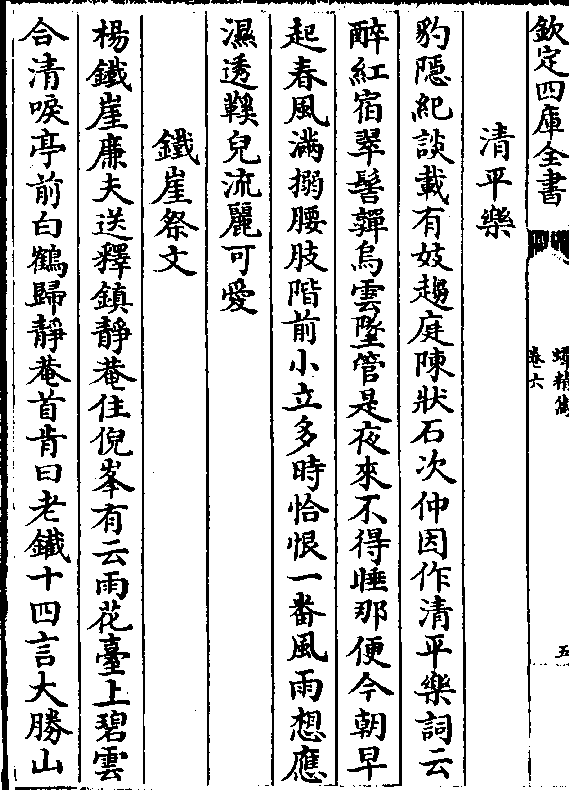 欽定四庫全書
蟫精雋
卷六
五
清平樂
豹隱紀談載有妓趨庭陳狀石次仲因作清平樂詞云
醉紅宿翠髻嚲烏雲墜管是夜來不得睡那便今朝早
起春風滿搦腰肢階前小立多時恰恨一番風雨想應
濕透鞵兒流麗可愛
鐵崖祭文
楊鐵崖廉夫送釋鎮靜菴住倪峯有云雨花臺上碧雲
合清唳亭前白鶴歸靜菴首肯曰老鐵十四言大勝山